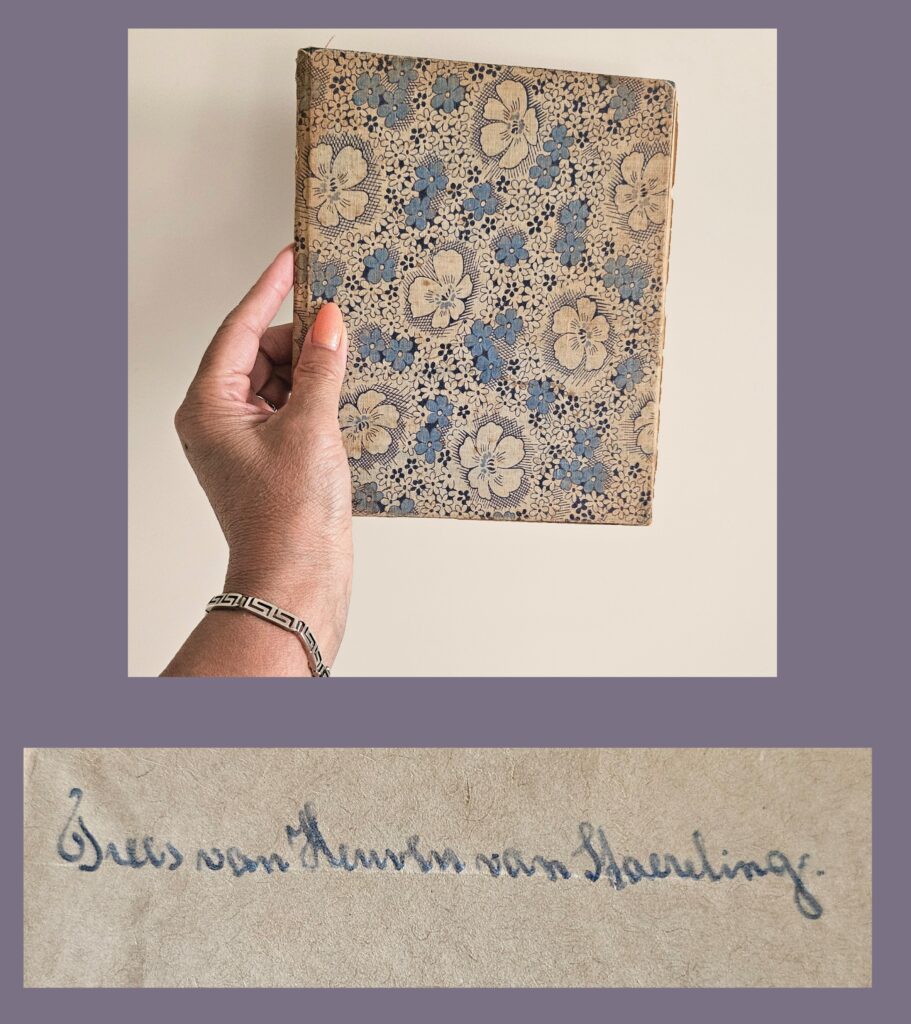 Trees van Heuven van Staereling.